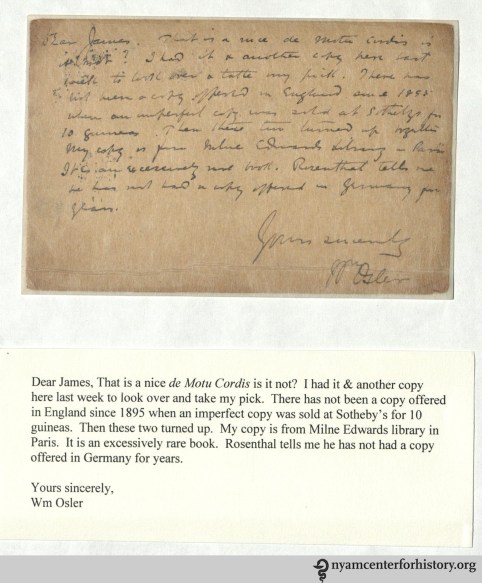 Dear James, That is a nice de Motu Cordis is
it not? I had it & another copy here last
week to look over & take my pick. There has
not been a copy offered in England since 1895
when an imperfect copy was sold at Sothebys for
10 guineas. Then these two turned up
My copy is from Milne Edwards library in Paris
It is an excessively rare book. Rosenthal tells me
he has not had a copy offered in Germany for
years.
Yours sincerely
Wm Osler
Dear James, That is a nice de Motu Cordis is it not? I had it & another copy
here last week to look over and take my pick. There has not been a copy offered
in England since 1895 when an imperfect copy was sold at Sotheby's for 10
guineas. Then these two turned up. My copy is from Milne Edwards library in
Paris. It is an excessively rare book. Rosenthal tells me he has not had a copy
offered in Germany for years.
Yours sincerely,
Wm Osler
nyamcenterforhistory.org